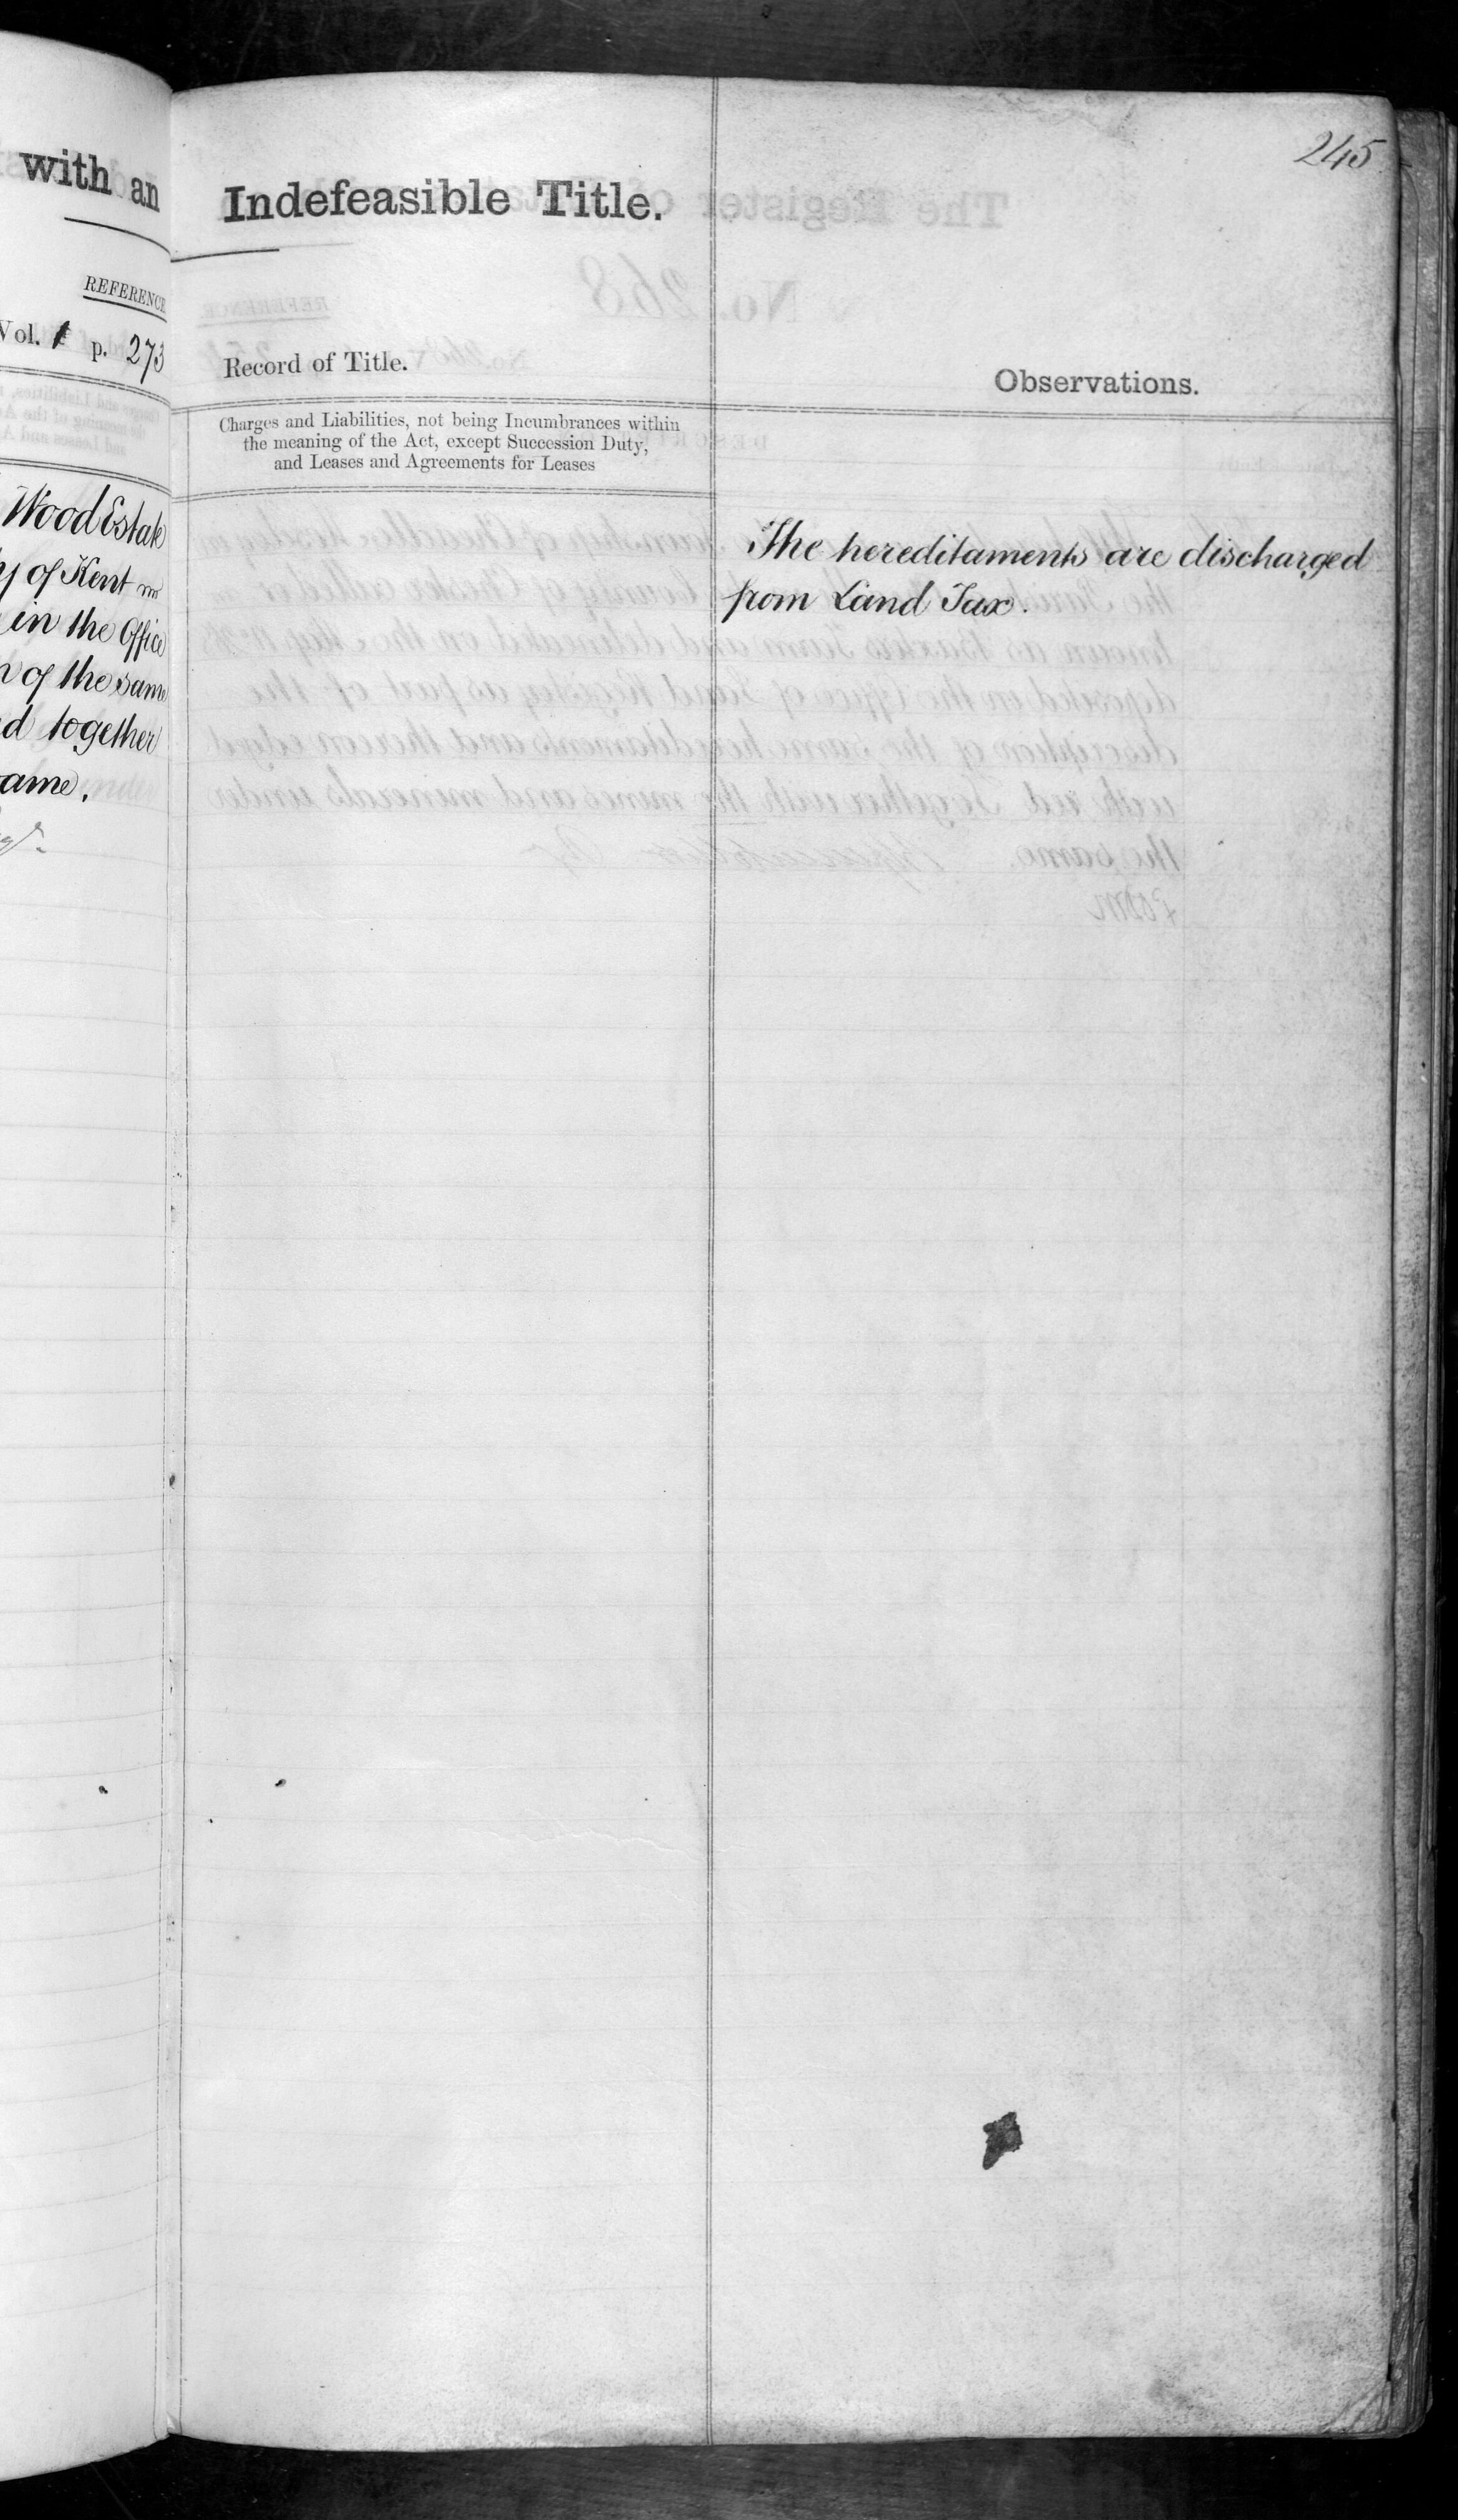 with an
REFERENCE
Vol. 1 p. 273
Wood Estate
of Kent
in the Office
of the same
together
245
Indefeasible Title.
Record of Title.
Observations.
Charges and Liabilities, not being Incumbrances within
the meaning of the Act, except Succession Duty,
and Leases and Agreements for Leases
The hereditaments are discharged
from Land Tax.